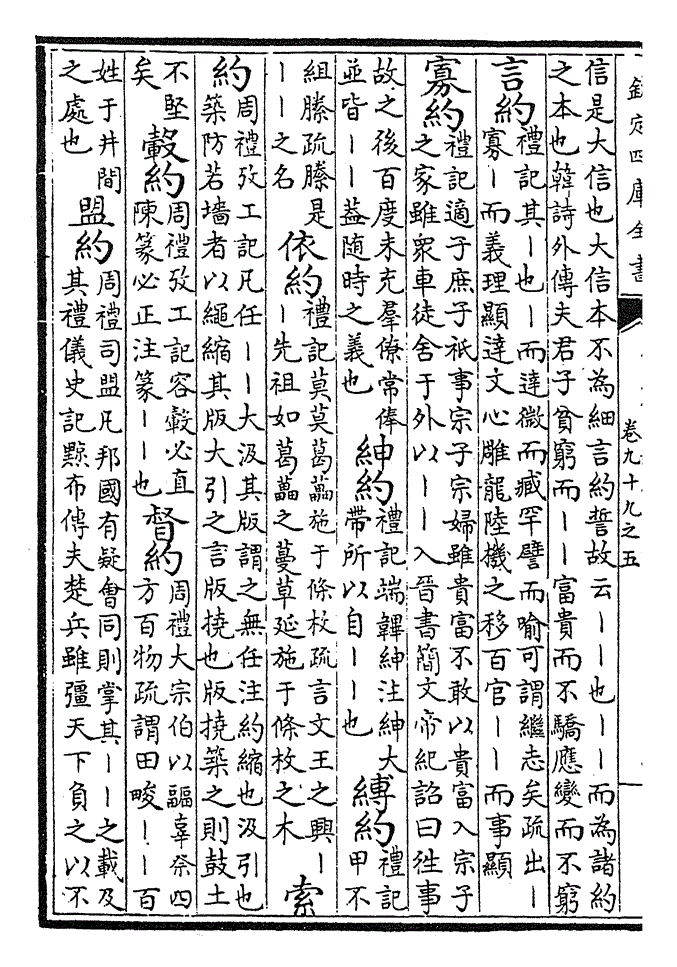 欽定四庫全書
卷九十九之五
信是大信也大信本不為細言約誓故云丨丨也丨丨而為諸約
之本也韓詩外傳夫君子貧窮而丨丨富貴而不驕應變而不窮
言約
禮記其丨也丨而達微而臧罕譬而喻可謂繼志矣疏出丨
寡丨而義理顯達文心雕龍陸機之移百官丨丨而事顯
寡約
禮記適子庶子祇事宗子宗婦雖貴富不敢以貴富入宗子
之家雖衆車徒舍于外以丨丨入晉書簡文帝紀詔曰往事
故之後百度未充羣僚常俸
並皆丨丨葢随時之義也
紳約
禮記端韠紳注紳大
帶所以自丨丨也
縛約
禮記甲不
組縢疏縢是
丨丨之名
依約
禮記莫莫葛藟施于條枚疏言文王之興丨
丨先祖如葛藟之蔓草延施于條枚之木
索
約
周禮攷工記凡任丨丨大汲其版謂之無任注約縮也汲引也
築防若墻者以繩縮其版大引之言版撓也版撓築之則鼓土
不堅
矣
轂約
周禮攷工記容轂必直
陳篆必正注篆丨丨也
督約
周禮大宗伯以疈辜祭四
方百物疏謂田畯丨丨百
姓于井間
之處也
盟約
周禮司盟凡邦國有疑會同則掌其丨丨之載及
其禮儀史記黥布傳夫楚兵雖彊天下負之以不